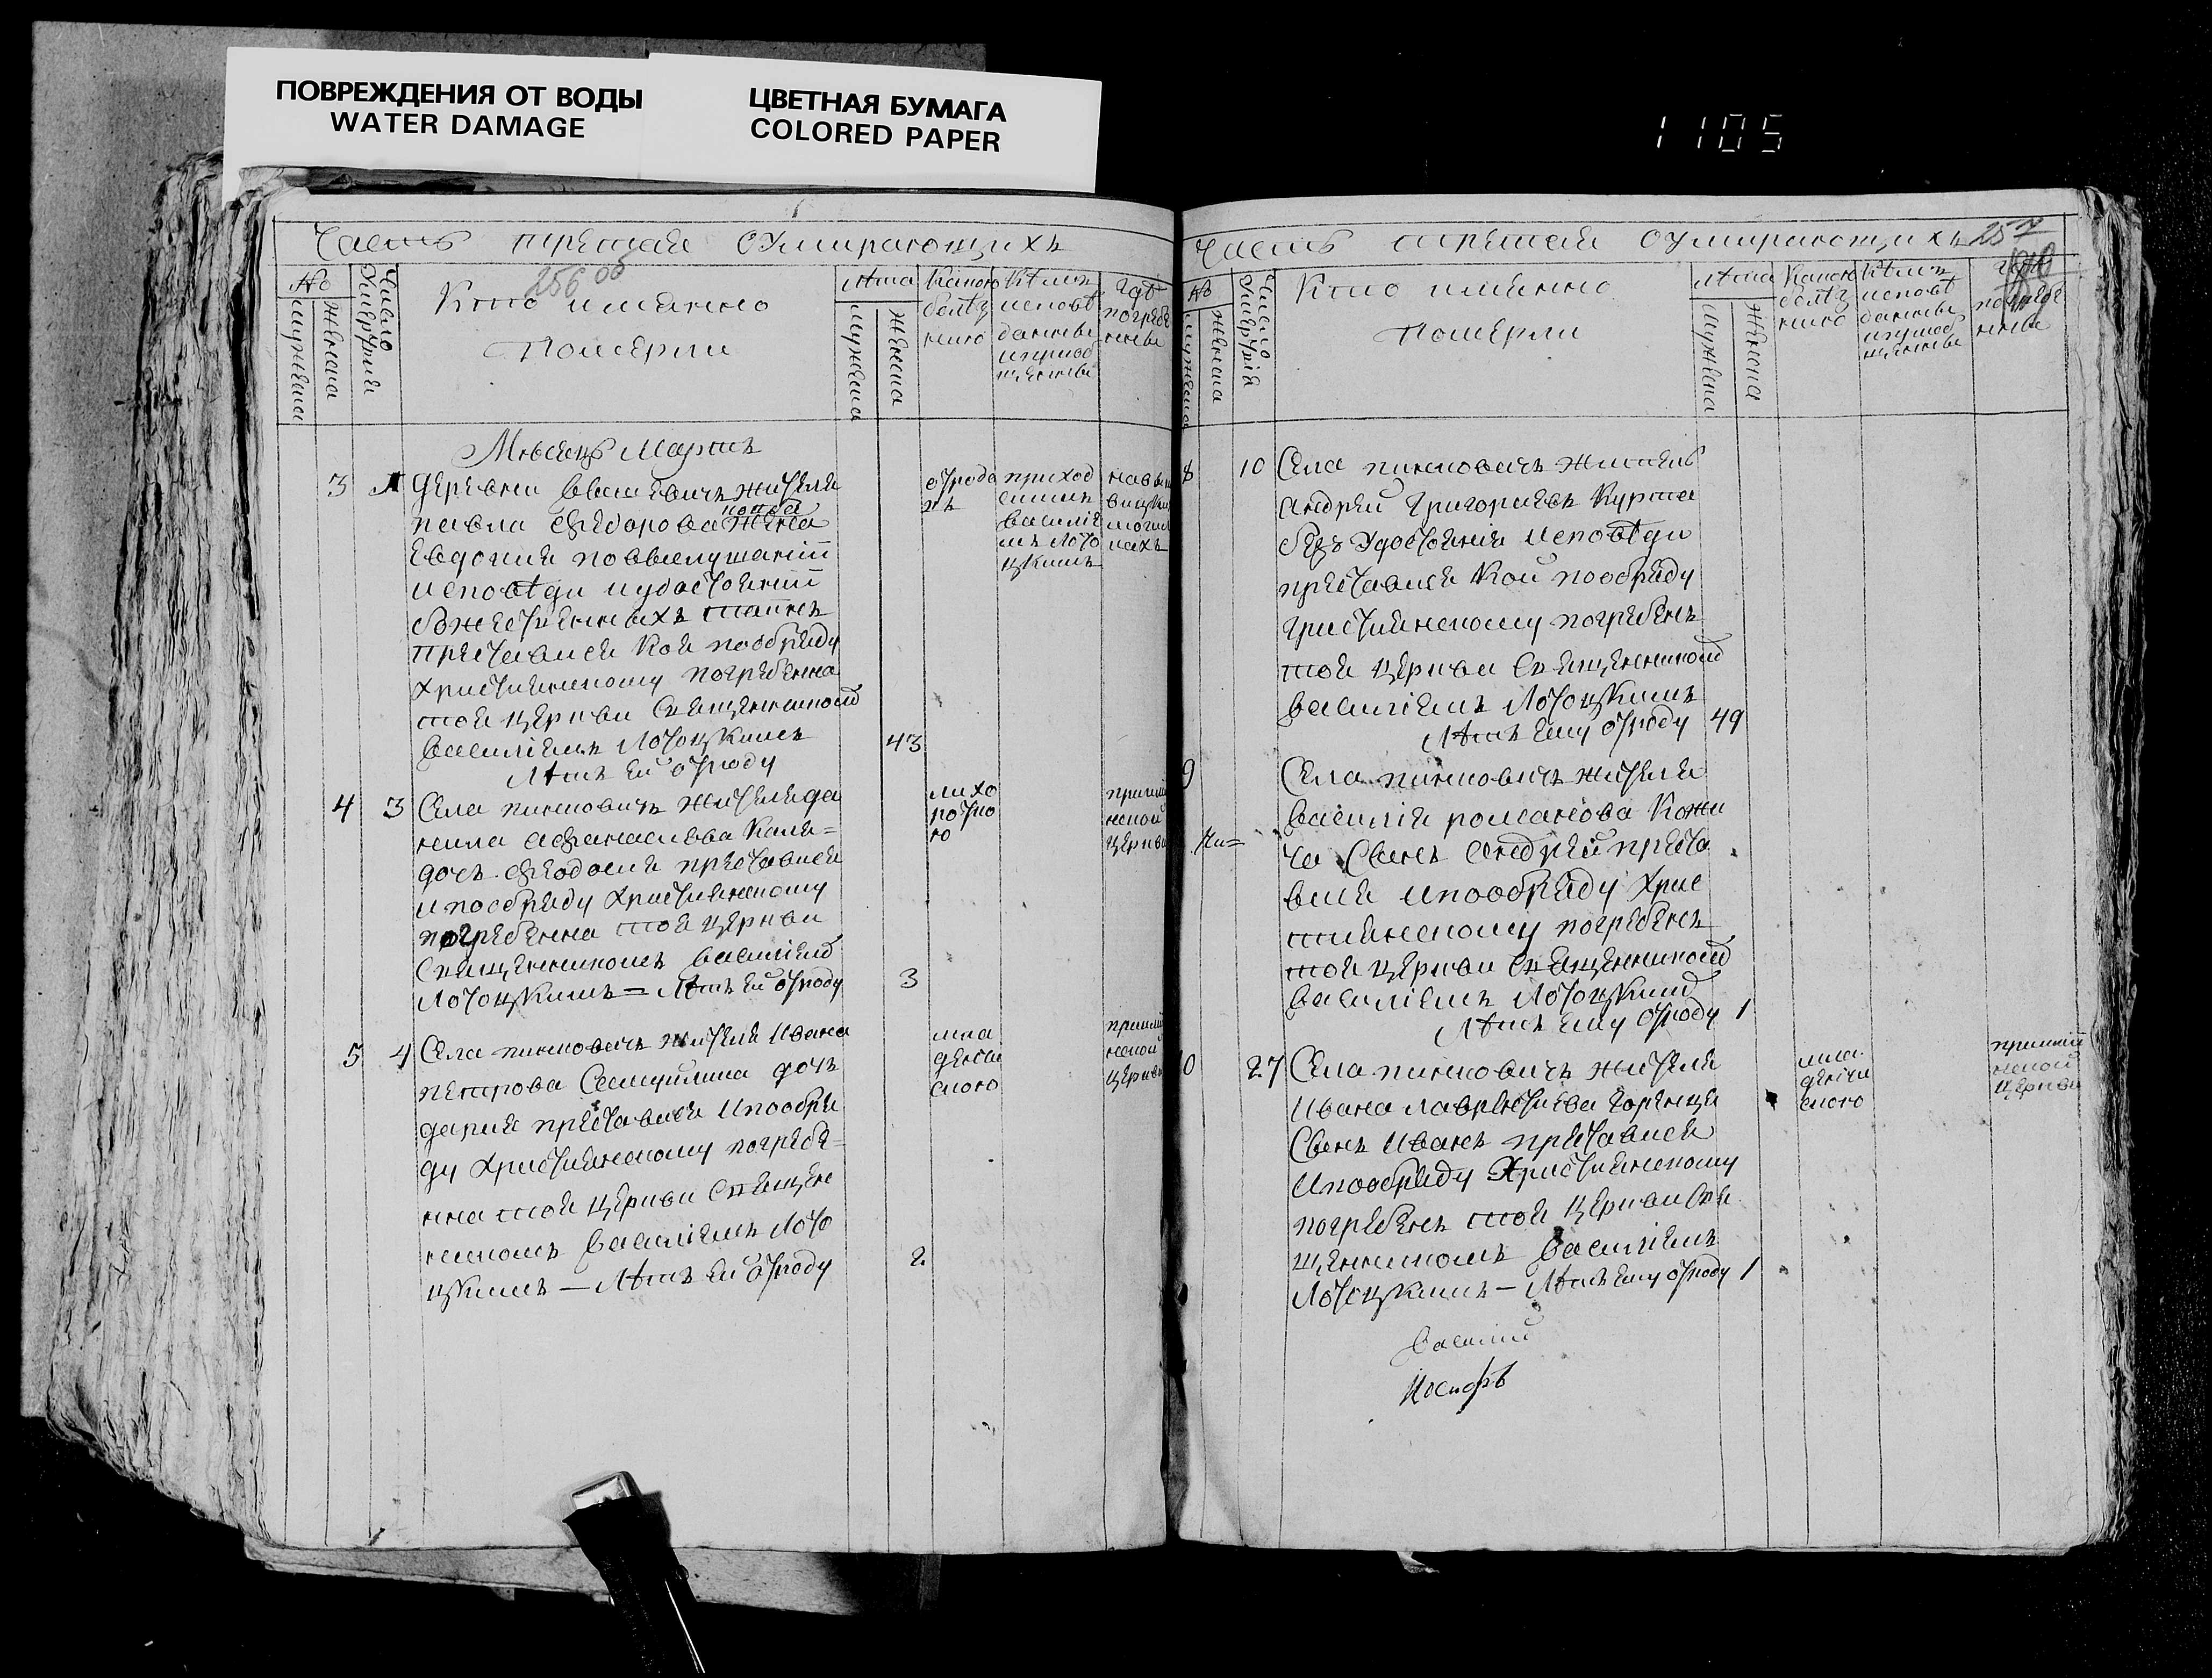 ПОВРЕЖДЕНИЯ ОТ ВОДЫ
WATER DAMAGE
ЦВЕТНАЯ БУМАГА
COLORED PAPER
1105
Часть третая оумирающихъ
256 об
№
мужеска
женска
Число умертвия
Кто имянно
Померли
Лѣта
мужеска
женска
Какою
болѣз
нию
Кѣмъ
исповѣ
данны
и приоб
щенны
гдѣ
погребе
нны
Мѣсяцъ Мартъ
3
деревни жителя
павла Федорова женка
Евдокия по выслушании
исповѣди и удостоении
божественныхъ таинъ
преставися коя по обряду
християнскому погребенна
тоя церкви Священникомъ
Василиемъ Лотоцкимъ
Лѣтъ ей отроду
43
отрода
хъ
приход
скимъ
Василие
мъ Лото
цкимъ
4 3 Села пинковичъ жителя да
нила Афанасиева Каля=
дочъ Феодосия преставися
и по обряду Християнскому
погребенна тоя церкви
Священникомъ Василиемъ
Лотоцкимъ = Лѣтъ ей отроду
3
лихо
ратко
ю
церкви
5 4 Села пинковичъ жителя Ивана
петрова дочъ
дария преставися и по обря
ду Християнскому погребе=
нна тоя церкви Священ
никомъ Василиемъ Лото
цкимъ — Лѣтъ ей отроду
2
мла
денче
скою
церкви
Часть третая оумирающихъ
257
№
мужеска
женска
Число умертвия
Кто имянно
Померли
Лѣта
мужеска
женска
Какою
болѣз
нию
Кѣмъ
исповѣ
данны
и приоб
щенны
погребе
нны
8 10 Села пинковичъ житель
Андрей Григориевъ Курта
безъ удостоения исповѣди
преставися кой по обряду
християнскому погребенъ
тоя церкви Священникомъ
Василиемъ Лотоцкимъ
Лѣтъ ему отроду 49
9
Села пинковичъ жителя
Василия романова Кожи
ча Сынъ Андрей преста
вися и по обряду Хрис
тиянскому погребенъ
тоя церкви Священникомъ
Василиемъ Лотоцкимъ
Лѣтъ ему отроду 1
10 27 Села пинковичъ жителя
Ивана Лаврентиева Горенца
Сынъ Иванъ преставися
и по обряду Християнскому
погребенъ тоя церкви Свя
щенникомъ Василиемъ
Лотоцкимъ — Лѣтъ ему отроду 1
мла
денче
скою
церкви
Василий
Иосифъ